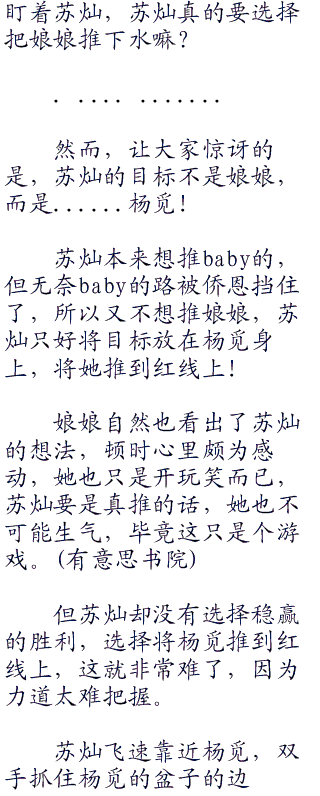 盯着苏灿，苏灿真的要选择
把娘娘推下水嘛？
. .... .......
然而，让大家惊讶的
是，苏灿的目标不是娘娘，
而是......杨觅！
苏灿本来想推baby的，
但无奈baby的路被侨恩挡住
了，所以又不想推娘娘，苏
灿只好将目标放在杨觅身
上，将她推到红线上！
娘娘自然也看出了苏灿
的想法，顿时心里颇为感
动，她也只是开玩笑而已，
苏灿要是真推的话，她也不
可能生气，毕竟这只是个游
戏。(有意思书院)
但苏灿却没有选择稳赢
的胜利，选择将杨觅推到红
线上，这就非常难了，因为
力道太难把握。
苏灿飞速靠近杨觅，双
手抓住杨觅的盆子的边